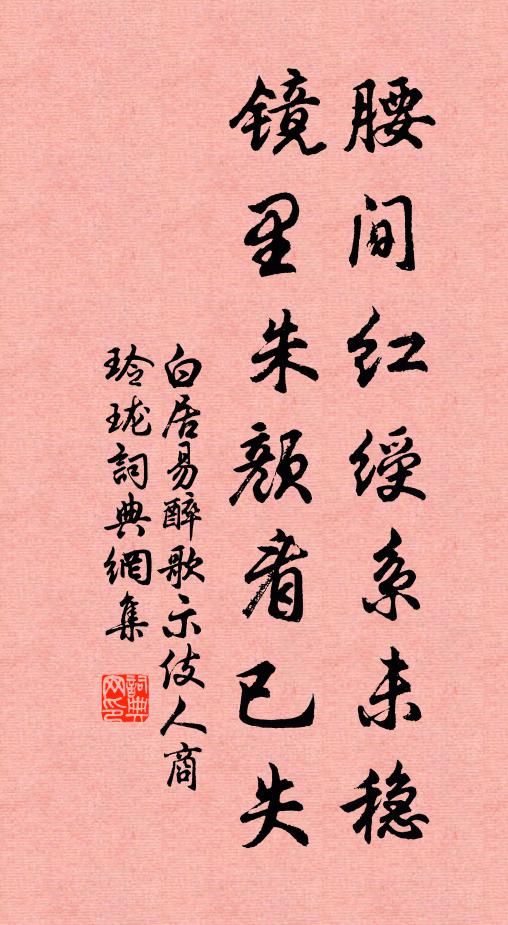 腰间红绶系未稳
镜里朱颜看已失
白居易醉歌示伎人商
玲珑詞典網集
詞典网印